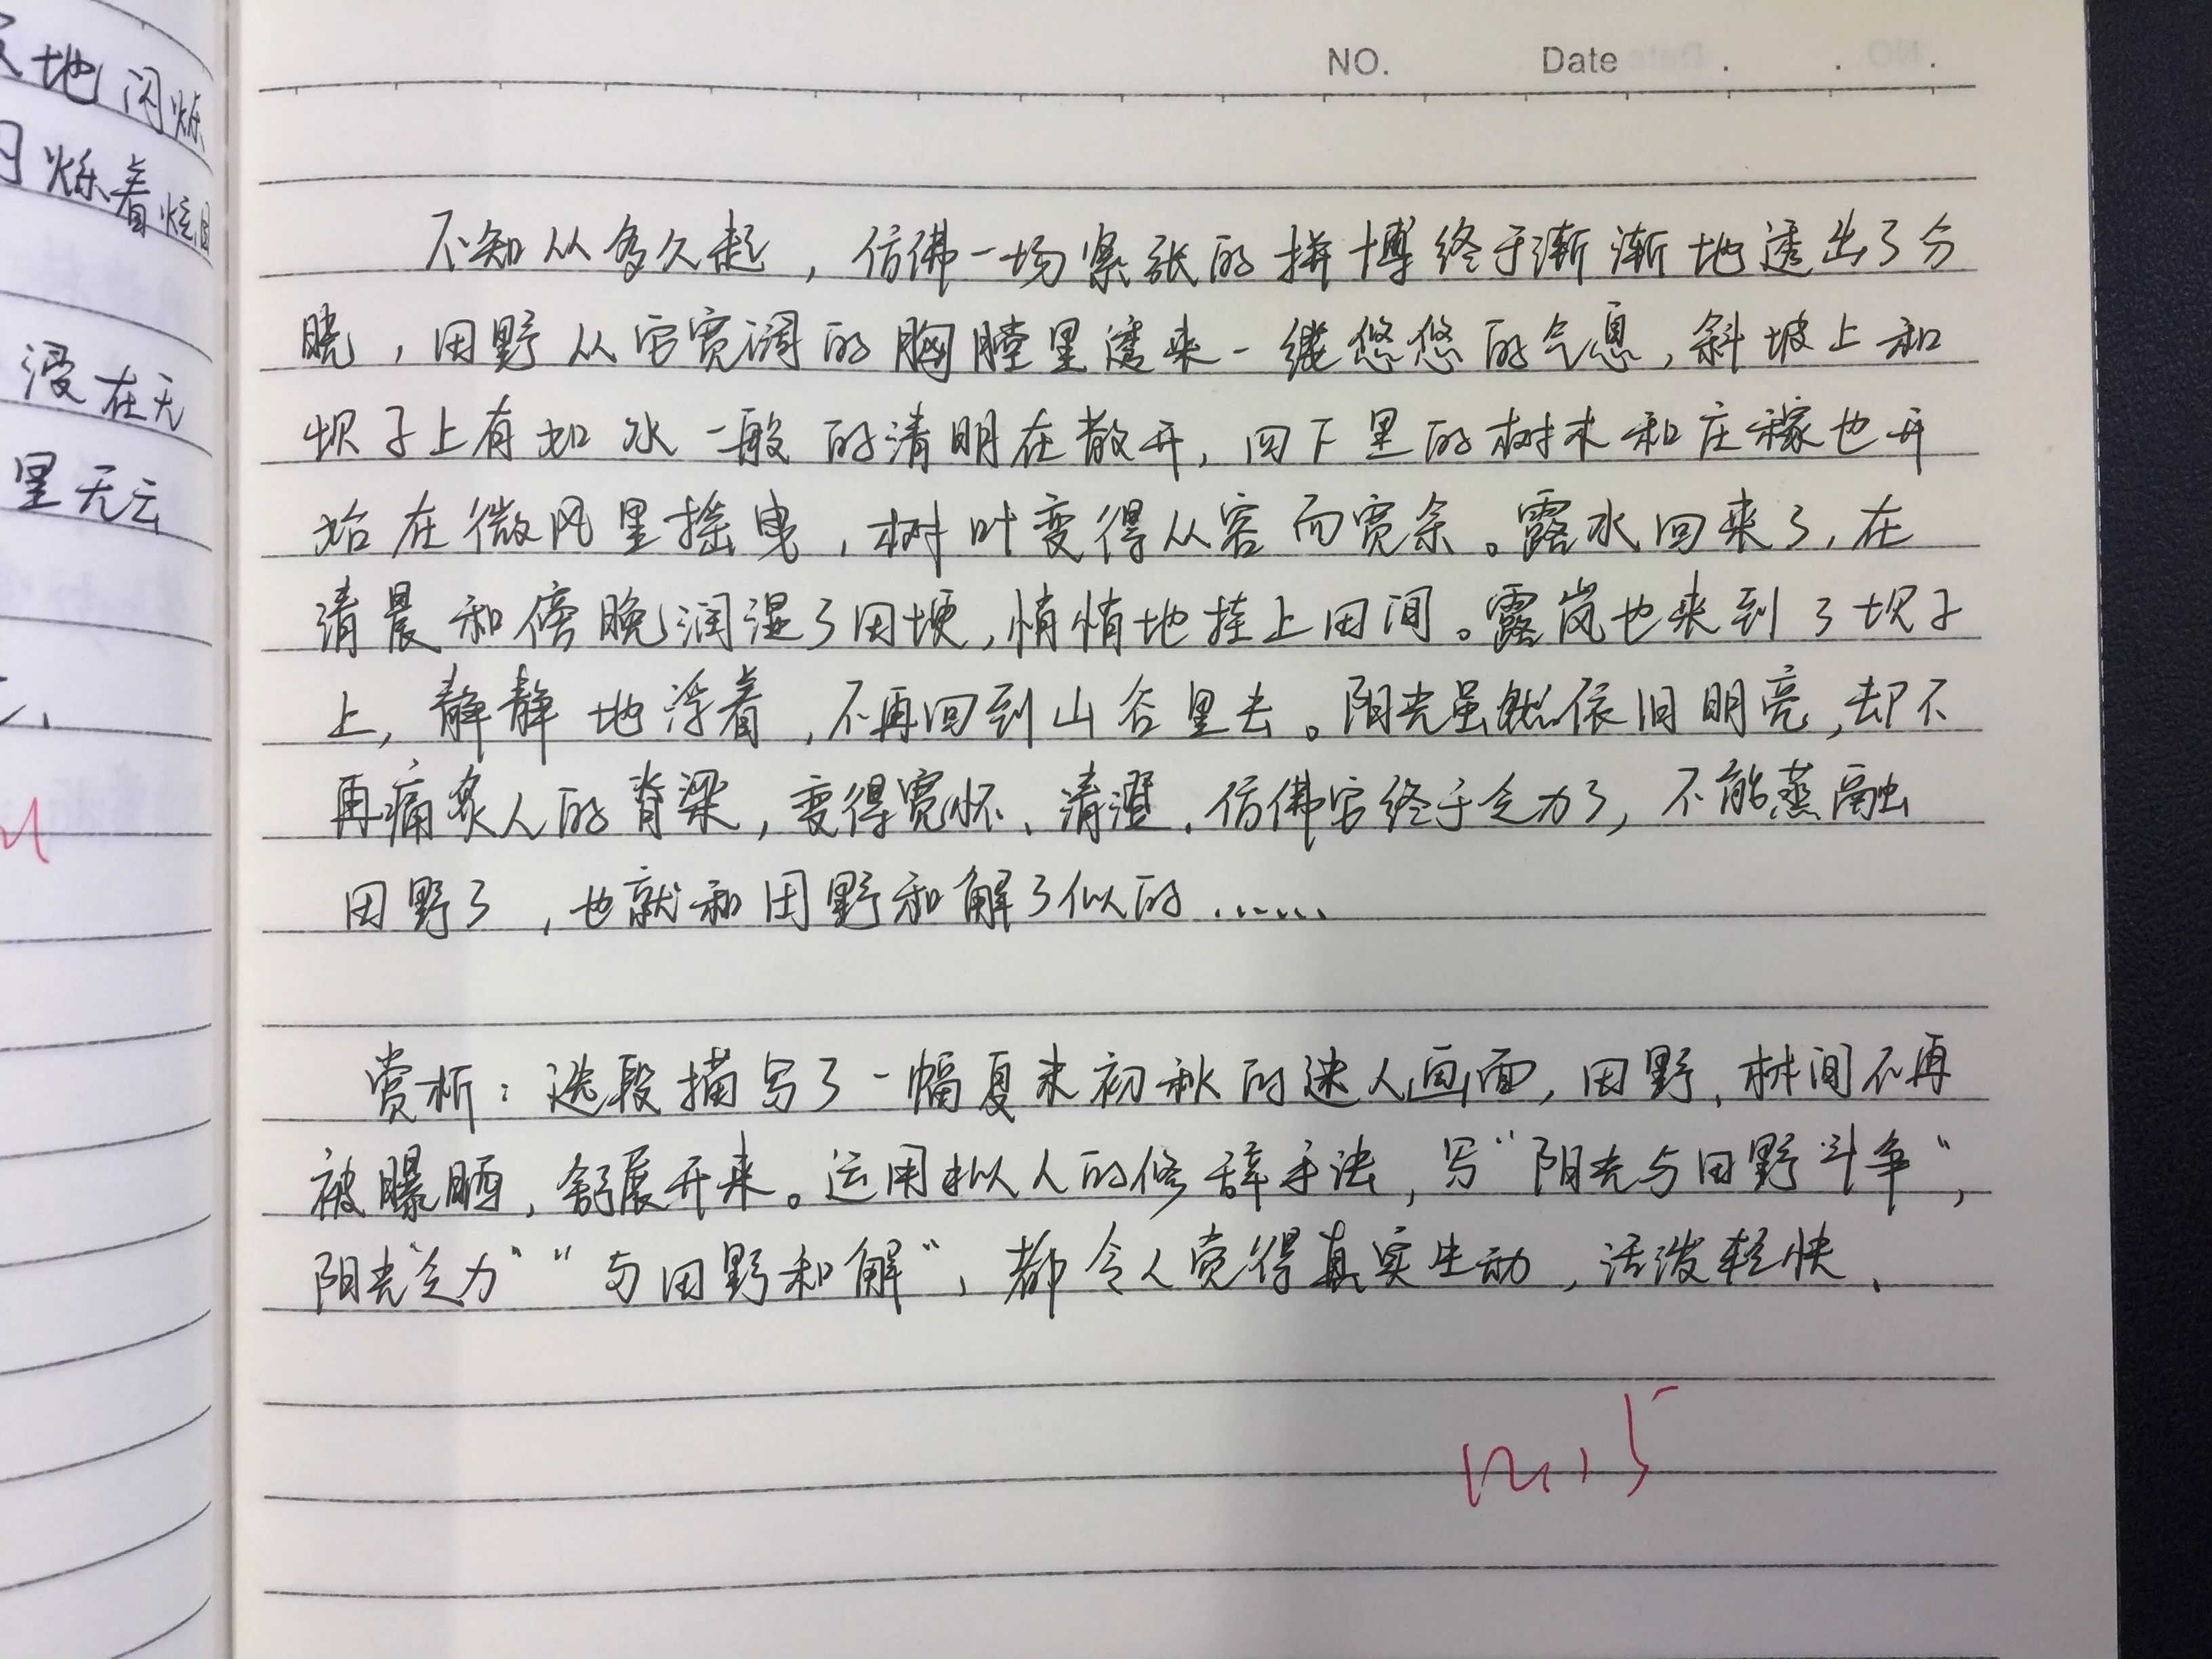 NO. Date
地闪烁
烁着炫目
浸在无
里无云
不知从多久起，仿佛一场紧张的拼搏终于渐渐地透出了分
晓，田野从它宽阔的胸膛里透来一缕悠悠的气息，斜坡上和
坝子上有如水一般的清明在散开，四下里的树木和庄稼也开
始在微风里摇曳，树叶变得从容而宽余。露水回来了，在
清晨和傍晚润湿了田埂，悄悄地挂上田间。露岚也来到了坝子
上，静静地浮着，不再回到山谷里去。阳光虽然依旧明亮，却不
再痛炙人的脊梁，变得宽怀、清澄，仿佛它终于乏力了，不能蒸融
田野了，也就和田野和解了似的……
赏析：选段描写了一幅夏末初秋的迷人画面，田野、林间不再
被曝晒，舒展开来。运用拟人的修辞手法，写“阳光与田野斗争”，
阳光“乏力”“与田野和解”，都令人觉得真实生动，活泼轻快、